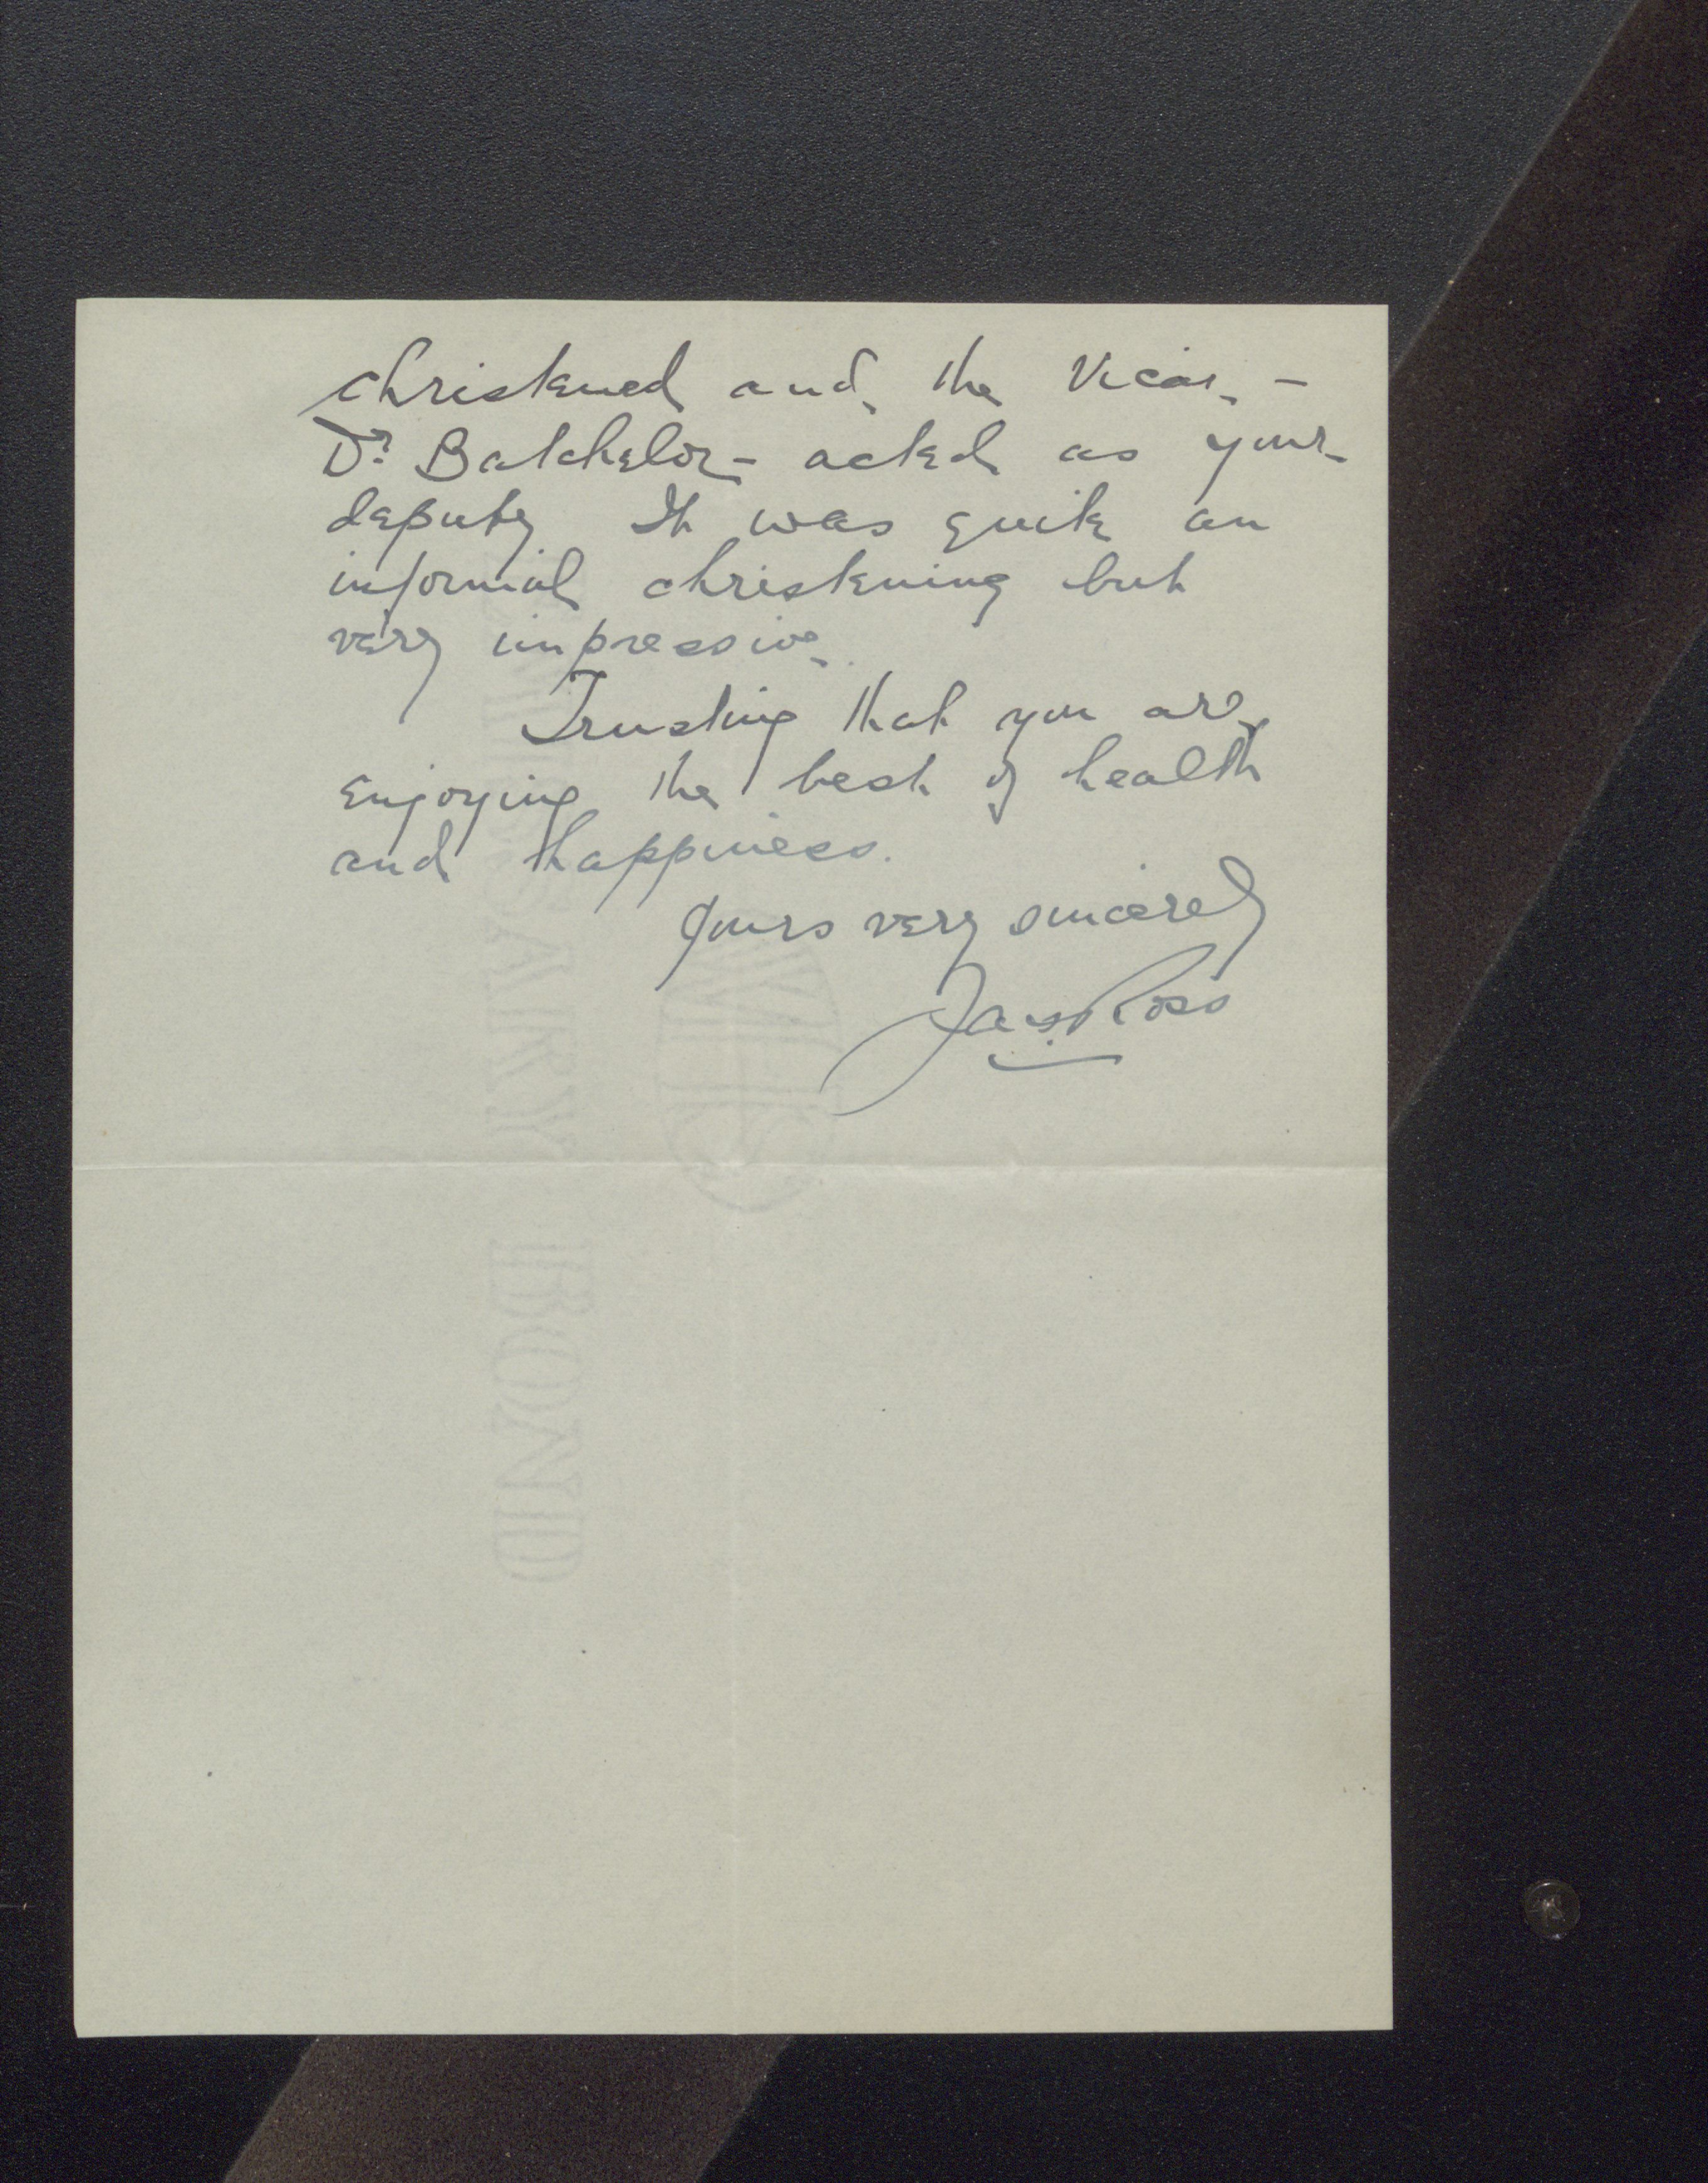 christened and the Vicar -
Dr. Batchelor - acted as your
deputy It was quite an
informal christening but
very impressive.
Trusting that you are
enjoying the best of health
and happiness.
Yours very sincerely
Jas Ross
BOND